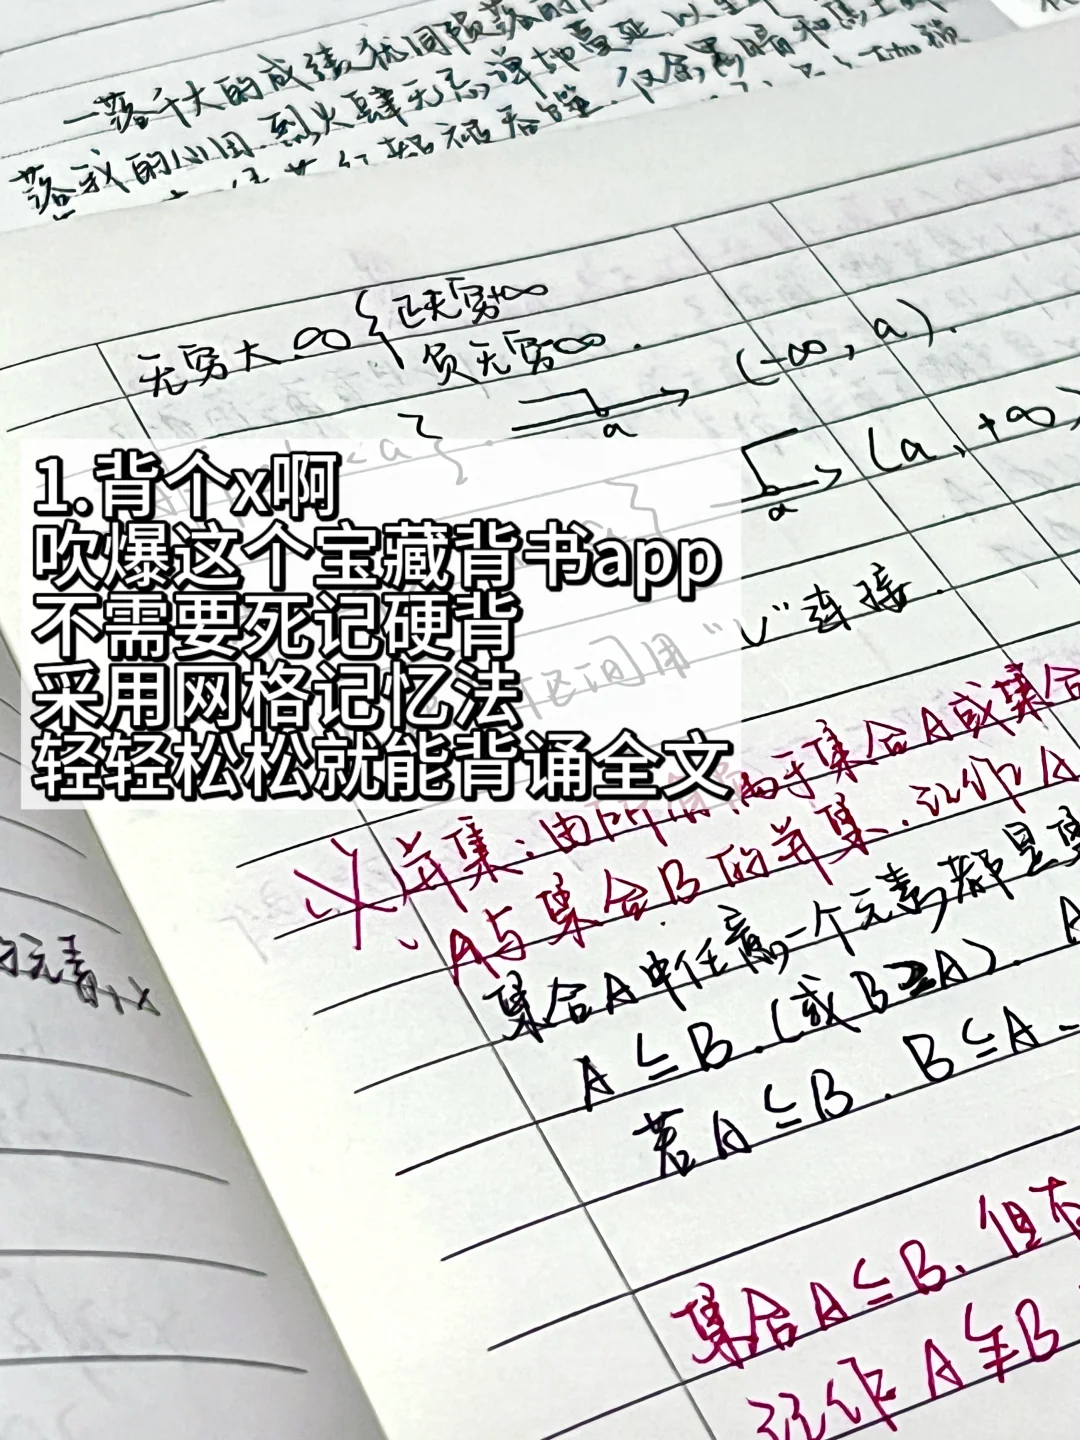 一落千大的成绩犹同陨落的
落我的心田.烈火肆无忌惮地蔓延
无穷大 ∞ { 正无穷+∞
负无穷∞.
a (-∞, a).
a (a, +∞)
1.背个x啊
吹爆这个宝藏背书app
不需要死记硬背
采用网格记忆法
轻轻松松就能背诵全文
< a }
区间用“∪”连接.
并集:由所有属于集合A或集合
A与集合B的并集.记作A
集合A中任意一个元素都是集
A⊆B.(或B⊇A).
若A⊆B.B⊆A
集合A⊆B.但
记作A⫋B
的元素